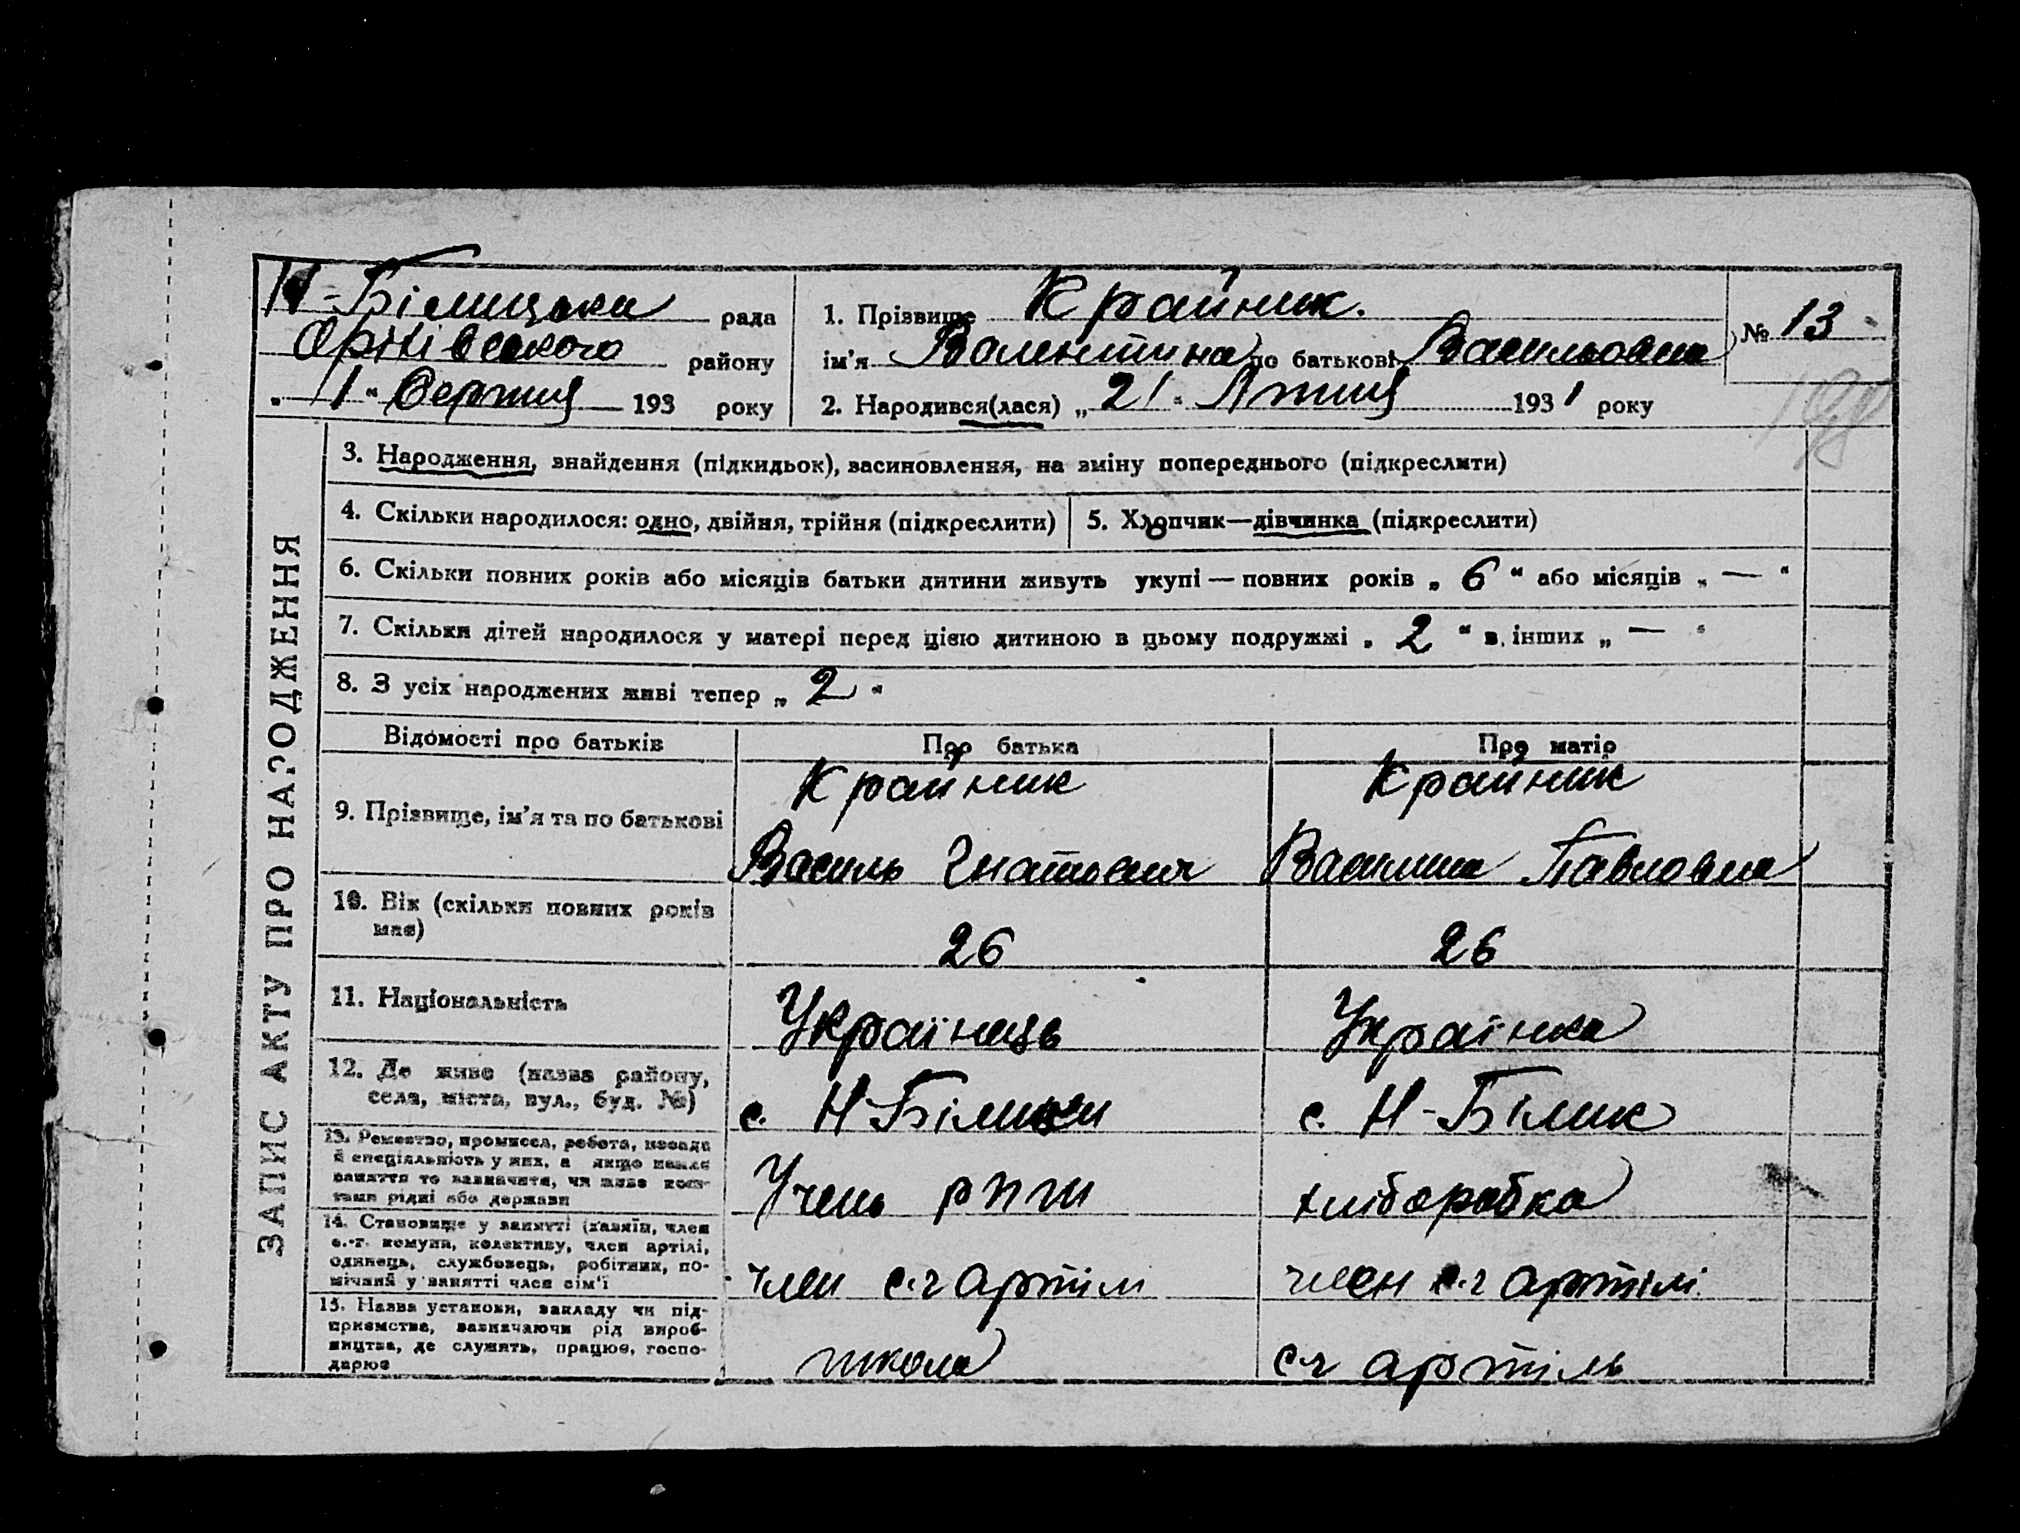 Н-Білицька рада
району
„ 1 " Серпня 193 року
1. Прізвище Крайник.
ім'я Валентина по батькові Васильовна
№ 13
2. Народився(лася) „ 21 " Лютня 1931 року
198
ЗАПИС АКТУ ПРО НАРОДЖЕННЯ
3. Народження, знайдення (підкидьок), засиновлення, на зміну попереднього (підкреслити)
4. Скільки народилося: одно, двійня, трійня (підкреслити)
5. Хлопчик—дівчинка (підкреслити)
6. Скільки повних років або місяців батьки дитини живуть укупі — повних років „ 6 " або місяців „ — "
7. Скільки дітей народилося у матері перед цією дитиною в цьому подружжі „ 2 " в інших „ — "
8. З усіх народжених живі тепер „ 2 "
Відомості про батьків
Про батька
Про матір
9. Прізвище, ім'я та по батькові
Крайник
Василь Гнатович
Крайник
Василина Павловна
10. Вік (скільки повних років
має)
26
26
11. Національність
Українець
Українка
12. Де живе (назва району,
села, міста, вул., буд. №)
с. Н-Білики
с. Н-Білик
13. Ремество, промисел, робота, посада
й спеціяльність у них, а якщо немає
заняття то зазначити, чи живе кош-
тами рідні або держави
Учень
хліборобка
14. Становище у занятті (хазяїн, член
с.-г. комуни, колективу, член артілі,
одинець, службовець, робітник, по-
мічний у занятті член сім'ї
член с.г артілі
член с.г артілі.
15. Назва установи, закладу чи під-
приємства, зазначаючи рід вироб-
ництва, де служить, працює, госпо-
дарює
школа
с.г артіль